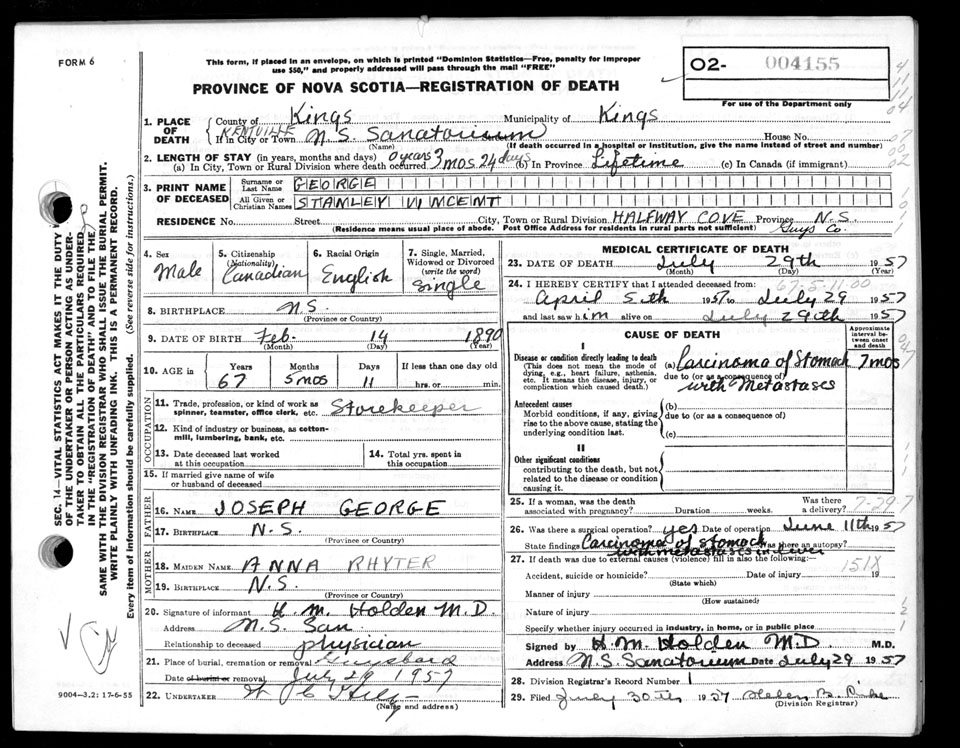 FORM 6
This form, if placed in an envelope, on which is printed "Dominion Statistics—Free, penalty for improper
use $50," and properly addressed will pass through the mail "FREE"
O2- 004155
For use of the Department only
PROVINCE OF NOVA SCOTIA—REGISTRATION OF DEATH
1. PLACE OF DEATH
County of Kings Municipality of Kings
KENTVILLE
If in City or Town N.S. Sanatorium House No.
(Name) (If death occurred in a hospital or institution, give the name instead of street and number)
2. LENGTH OF STAY (in years, months and days) 0 years 3 mos 24 days
(a) In City, Town or Rural Division where death occurred (b) In Province Lifetime (c) In Canada (if immigrant)
3. PRINT NAME OF DECEASED
Surname or Last Name GEORGE
All Given or Christian Names STANLEY VINCENT
RESIDENCE No. Street City, Town or Rural Division HALFWAY COVE Province N.S.
(Residence means usual place of abode. Post Office Address for residents in rural parts not sufficient) Guys Co.
4. Sex Male
5. Citizenship (Nationality) Canadian
6. Racial Origin English
7. Single, Married, Widowed or Divorced (write the word) Single
8. BIRTHPLACE N.S.
(Province or Country)
9. DATE OF BIRTH Feb. 14 1890
(Month) (Day) (Year)
10. AGE in Years Months Days If less than one day old
67 5 mos 11 hrs. or min.
OCCUPATION
11. Trade, profession, or kind of work as spinner, teamster, office clerk, etc. Storekeeper
12. Kind of industry or business, as cotton-mill, lumbering, bank, etc.
13. Date deceased last worked at this occupation
14. Total yrs. spent in this occupation
15. If married give name of wife or husband of deceased
FATHER
16. NAME JOSEPH GEORGE
17. BIRTHPLACE N.S.
(Province or Country)
MOTHER
18. MAIDEN NAME ANNA RHYTER
19. BIRTHPLACE N.S.
(Province or Country)
20. Signature of informant H. M. Holden M.D.
Address N.S. San.
Relationship to deceased physician
21. Place of burial, cremation or removal
Date of burial or removal July 29 1957
22. UNDERTAKER
(Name and address)
MEDICAL CERTIFICATE OF DEATH
23. DATE OF DEATH July 29th 1957
(Month) (Day) (Year)
67-5-11-00
24. I HEREBY CERTIFY that I attended deceased from:
April 5th 1957 to July 29 1957
and last saw him alive on July 29th 1957
CAUSE OF DEATH
Approximate interval between onset and death
I
Disease or condition directly leading to death
(This does not mean the mode of dying, e.g., heart failure, asthenia, etc. It means the disease, injury, or complication which caused death.)
(a) Carcinoma of Stomach 7 mos
due to (or as a consequence of)
with Metastases
Antecedent causes
Morbid conditions, if any, giving rise to the above cause, stating the underlying condition last.
(b)
due to (or as a consequence of)
(c)
II
Other significant conditions
contributing to the death, but not related to the disease or condition causing it.
25. If a woman, was the death associated with pregnancy? Duration weeks. Was there a delivery?
7-29-7
26. Was there a surgical operation? yes Date of operation June 11th 1957
State findings Carcinoma of stomach Was there an autopsy?
with metastases in liver
27. If death was due to external causes (violence) fill in also the following:
151X
Accident, suicide or homicide? Date of injury 19
(State which)
Manner of injury
(How sustained)
Nature of injury
Specify whether injury occurred in industry, in home, or in public place
Signed by H.M. Holden M.D. M.D.
Address N.S. Sanatorium Date July 29 1957
28. Division Registrar's Record Number 1
29. Filed 30th 1957 Helen
(Division Registrar)
SEC. 14—VITAL STATISTICS ACT MAKES IT THE DUTY
OF THE UNDERTAKER OR PERSON ACTING AS UNDER-
TAKER TO OBTAIN ALL THE PARTICULARS REQUIRED
IN THE "REGISTRATION OF DEATH" AND TO FILE THE
SAME WITH THE DIVISION REGISTRAR WHO SHALL ISSUE THE BURIAL PERMIT.
WRITE PLAINLY WITH UNFADING INK. THIS IS A PERMANENT RECORD.
Every item of information should be carefully supplied. (See reverse side for instructions.)
9004-3.2: 17-6-55